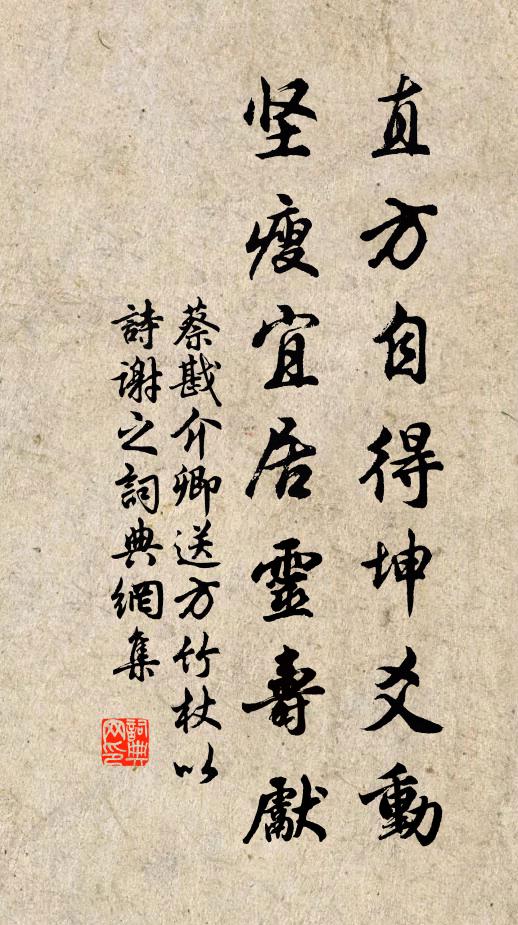 直方自得坤爻動
坚瘦宜居靈壽獻
蔡戡介卿送方竹杖以
詩謝之詞典網集
詞典
网印